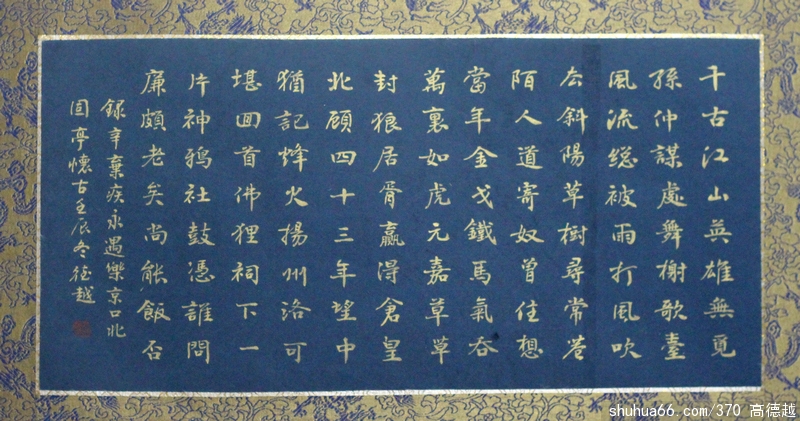 千古江山英雄無覓
孫仲謀處舞榭歌臺
風流総被雨打風吹
去斜陽草樹尋常巷
陌人道寄奴曾住想
當年金戈鐵馬氣吞
萬裏如虎元嘉草草
封狼居胥贏得倉皇
北顧四十三年望中
猶記烽火揚州洛可
堪回首佛狸祠下一
片神鴉社鼓憑誰問
廉頗老矣尚能飯否
錄辛棄疾永遇樂京口北
固亭懷古壬辰冬德越
shuhua66.com/370 高德越